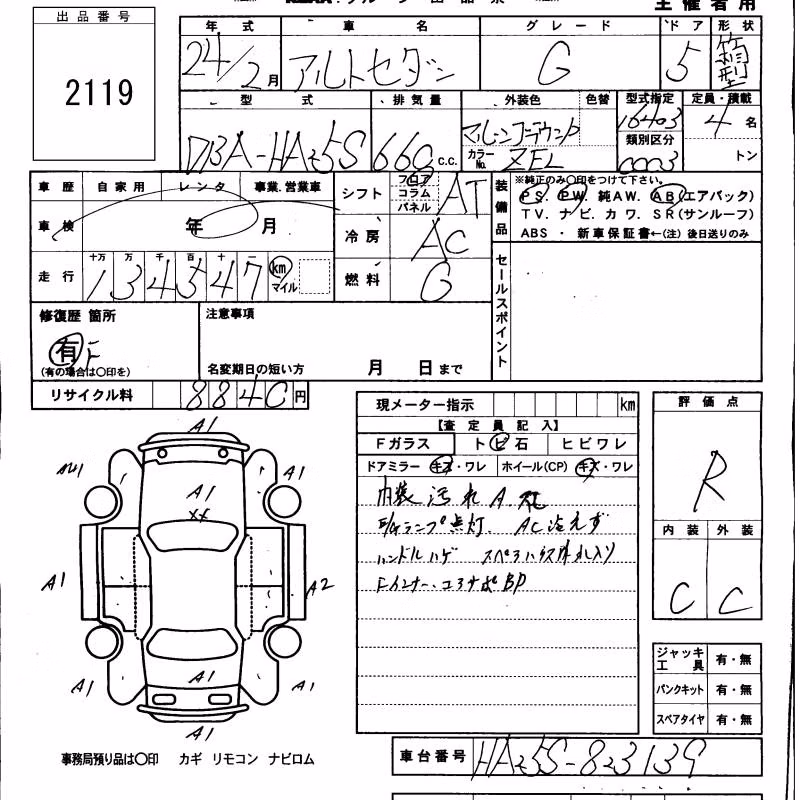 主催者用
出品番号
2119
年式 車名 グレード ドア 形状
24/2月 アルトセダン G 5 箱型
型式 排気量 外装色 色替 型式指定 定員・積載
DBA-HA25S 660 c.c. カラーNo. ZEL 16403 4名
類別区分
0003 トン
車歴 自家用 レンタ 事業.営業車
シフト フロア コラム パネル AT
装備品
※純正のみ○印をつけて下さい。
PS. PW. 純AW. AB(エアバック)
TV. ナビ. カワ. SR(サンルーフ)
ABS ・ 新車保証書←(注) 後日送りのみ
車検 年 月
冷房 AC
走行 十万 万 千 百 十 一
134547 km マイル
燃料 G
セールスポイント
修復歴 箇所
有 F
(有の場合は○印を)
注意事項
名変期日の短い方 月 日まで
リサイクル料 8840円
現メーター指示 km
【査定員記入】
Fガラス トビ石 ヒビワレ
ドアミラー キズ・ワレ ホイール(CP) キズ・ワレ
内装汚れ A
E/Gランプ点灯. AC冷えず
ハンドルハゲ
BP
評価点
R
内装 外装
C C
A1
A1
A1
A1
XX
A1
A2
A1
A1
A1
A1
ジャッキ工具 有・無
パンクキット 有・無
スペアタイヤ 有・無
事務局預り品は○印 カギ リモコン ナビロム
車台番号 HA25S-823139